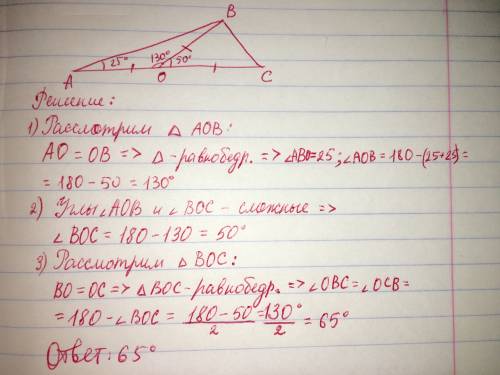 B
25° 130° 50°
A O C
Решение:
1) Рассмотрим △ AOB:
AO = OB => △ -равнобедр. => ∠ABO=25; ∠AOB = 180-(25+25)=
= 180-50 = 130°
2) Углы ∠AOB и ∠BOC - сложные =>
∠BOC = 180-130 = 50°
3) Рассмотрим △ BOC:
BO = OC => △BOC-равнобедр. => ∠OBC = ∠OCB =
= 180-∠BOC = 180-50°/2 = 130°/2 = 65°
Ответ: 65°